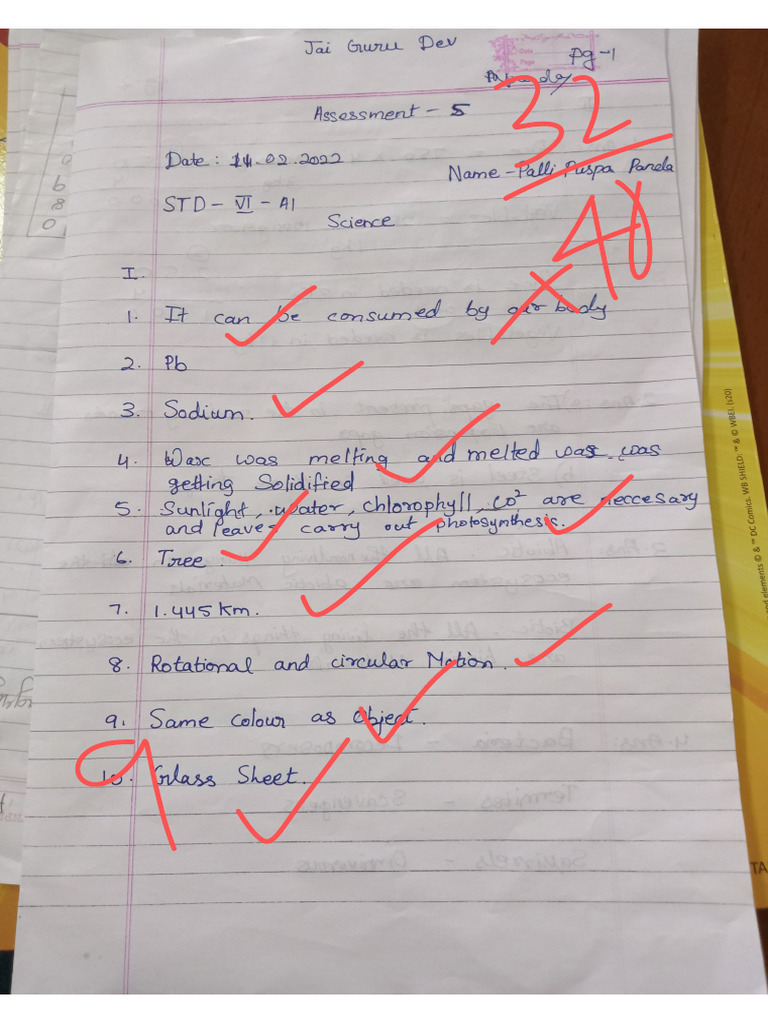 Jai Guru Dev
Date
Page
Pg-1
Assessment - 5
32
Date: 14.02.2022
Name - Palli Puspa Panda
STD - VI - A1
40
Science
I.
1. It can be consumed by our body
2. Pb
3. Sodium.
4. Wax was melting and melted was was
getting Solidified
5. Sunlight, water, chlorophyll, CO² are neccesary
and leaves carry out photosynthesis.
6. Tree.
7. 1.445 Km.
8. Rotational and circular Motion.
9. Same colour as Object.
9
10. Glass Sheet.
and elements © & ™ DC Comics. WB SHIELD: ™ & © WBEI. (s20)